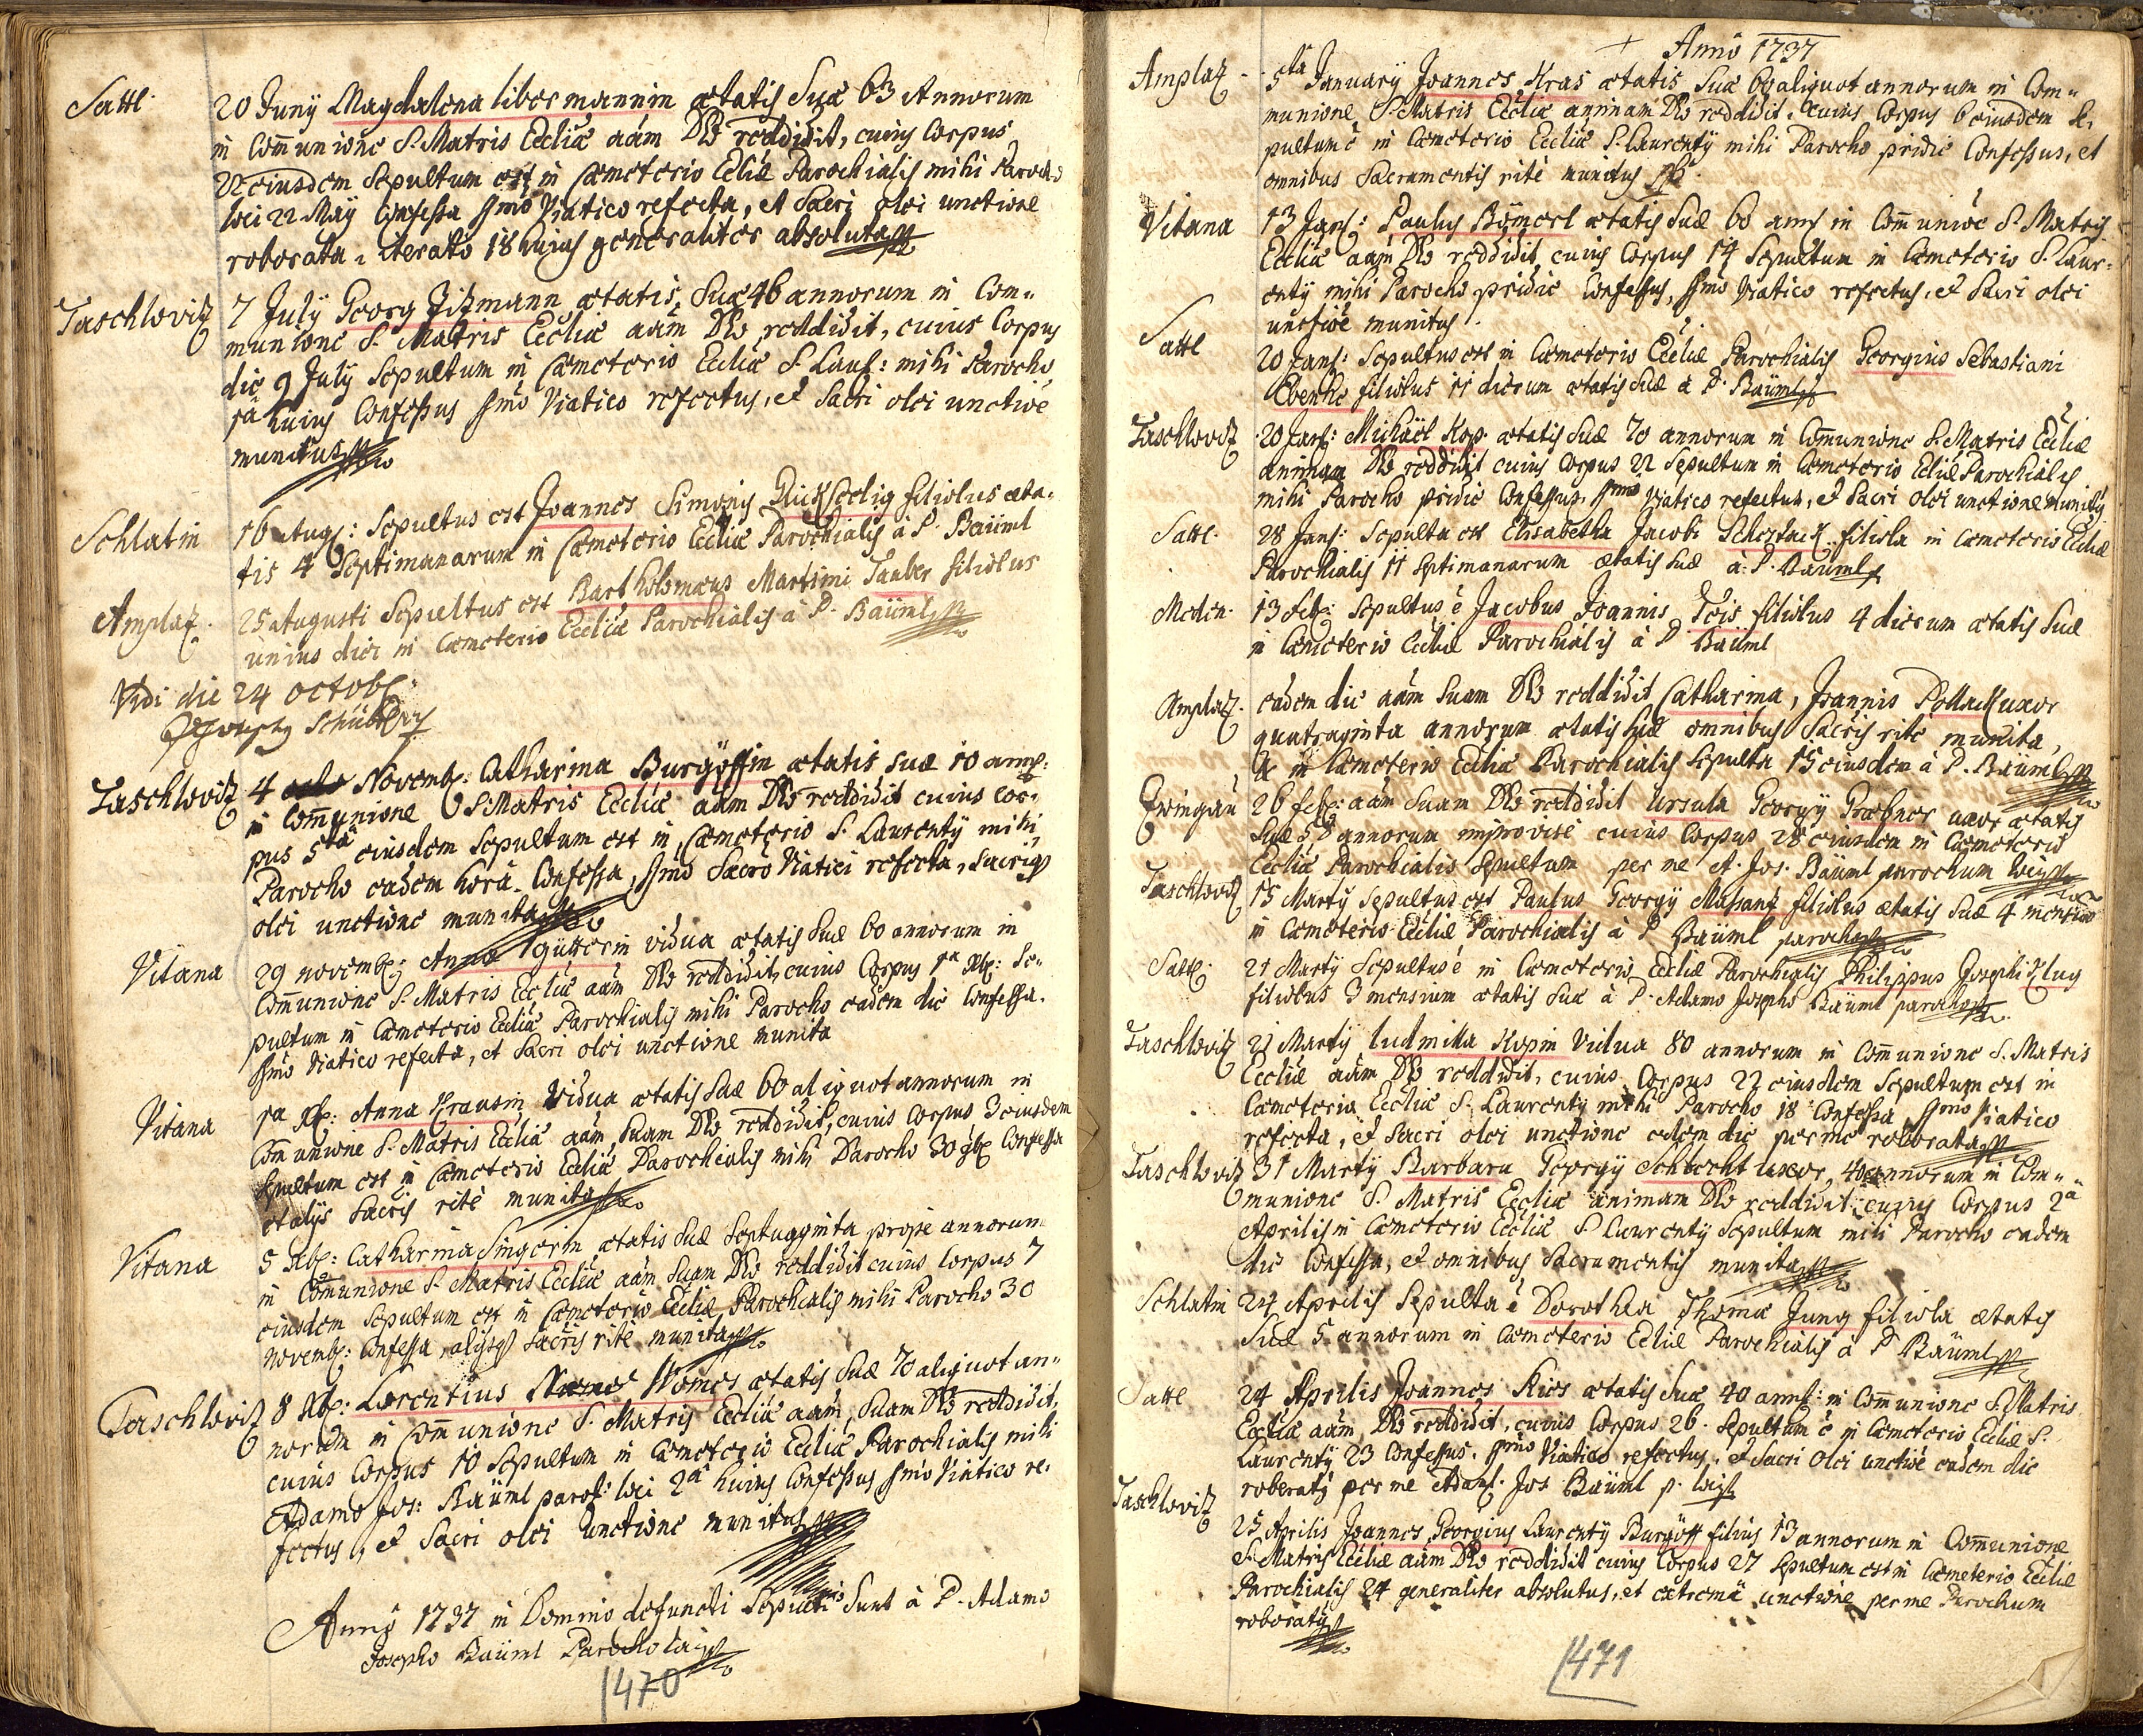 Sattl
20 Junÿ Magdalena libermannin ætatis Suæ 63 Annorum
in Comunione S. Matris Eccliæ aám Dło reddidit, cuius Corpus
22 eiusdem Sepultum est in Cæmeterio Ecliæ Parochialis mihi Parocho
loci 22 Maÿ Confessa ssmo Viatico refecta, et Sacri olei unctione
roborata, iterato 18 huius generaliter absoluta
Taschlovitz
7 Julÿ Georg Zitzmann ætatis Suæ 46 annorum in Com=
munione S. Matris Eccliæ aám Dło reddidit, cuius Corpus
die 9 Julÿ Sepultum in Cæmeterio Eccliæ S. Lau: mihi Parocho
huius Confessus ssmo Viatico refectus, et Sacri olei unctioe
munitus
Schlatin
16 Aug: Sepultus est Joannes Simonis Rickseelig filiolus æta=
tis 4 Septimanarum in Cæmeterio Eccliæ Parochialis à P. Baüml
Amplaz
25 Augusti Sepultus est Bartholomæus Martini Tauber filiolus
unius diei in Cæmeterio Eccliæ Parochialis à P. Baüml
Vidi die 24 octob:
Taschlovitz
4 Novemb: Catharina Burgöffin ætatis suæ 10 ann:
in Communione S. Matris Eccliæ aám Dło reddidit cuius cor=
pus 5ta eiusdem Sepultum est in Cæmeterio S. Laurentÿ mihi
Parocho eadem hora Confessa, ssmo Sacro Viatici refecta, Sacriq
olei unctione munita
Vitana
29 novemb: Anna vidua ætatis Suæ 60 annorum in
Comunione S. Matris Eccliæ aám Dło reddidit, cuius Corpus 1a Xb: Se=
pultum in Cæmeterio Eccliæ Parochialis mihi Parocho eadem die Confessa.
ssmo Viatico refecta, et Sacri olei unctione munita
Vitana
1a Xb: Anna Krausin Vidua ætatis Suæ 60 aliquot annorum in
Com unione S. Matris Eccliæ aám Suam Dło reddidit, cuius Corpus 3 eiusdem
Sepultum est in Cæmeterio Eccliæ Parochialis mihi Parocho 30 9b: Confessa
et alÿs Sacris rité munita
Vitana
5 Xb: Catharina Singerin ætatis Suæ Septuaginta prope annorum
in Comunione S. Matris Eccliæ aám Suam Dło reddidit cuius Corpus 7
eiusdem Sepultum est in Cæmeterio Eccliæ Parochialis mihi Parocho 30
Novemb: Confessa, alÿsq Sacris rité munita
Taschlovitz
8 Xb: Laurentius Wemes ætatis Suæ 70 aliquot an=
norum in Communione S. Matris Eccliæ aám, Suam Dło reddidit,
cuius Corpus 10 Sepultum in Cæmeterio Eccliæ Parochialis mihi
Adamo Jos: Baüml paro: loci 2a huius Confessus ssmo Viatico re=
fectus, et Sacri olei Unctione munitus
Anno 1737 in Domino defuncti Sepulti Sunt à P. Adamo
Josepho Baüml Parocho loci
1470
Anno 1737
Amplaz
5ta Januarÿ Joannes Kras ætatis Suæ 60 aliquot annorum in Com=
munione S. Matris Eccliæ animam Dło reddidit, cuius Corpus 6 eiusdem Se=
pultum é in Cæmeterio Eccliæ S. Laurentÿ mihi Parocho pridie Confessus, et
omnibus Sacramentis rité munitus
Vitana
13 Jan: Paulus Bömerl ætatis Suæ 60 ann in Com unioe S. Matris
Eccliæ aám Dło reddidit cuius Corpus 14 Sepultum in Cæmeterio S. Laur=
entÿ mihi Parocho pridie Confessus, ssmo Viatico refectus, et Sacri olei
unctioe munitus.
Sattl
20 Jan: Sepultus est in Cæmeterio Eccliæ Parochialis Georgius Sebastiani
filiolus 11 dierum ætatis Suæ à P. Baüml
Taschlovitz
20 Jan: Michäel Kop. ætatis Suæ 70 annorum in Comunione S. Matris Eccliæ
animam Dło reddidit cuius Corpus 22 Sepultum in Cæmeterio Ecliæ Parochialis
mihi Parocho pridie Confessus, ssmo Viatico refectus, et Sacri olei unctione munitus
Sattl.
28 Jan: Sepulta est Elisabetha Jacobi filiola in Cæmeterio Eccliæ
Parochialis 11 Septimanarum ætatis Suæ à P. Baüml
Meden.
13 Feb: Sepultus é Jacobus Joannis filiolus 4 dierum ætatis Suæ
in Cæmeterio Eccliæ Parochialis à P Baüml
Amplaz.
eadem die aám Suam Dło reddidit Catharina, Joannis Pollack uxor
quatraginta annorum ætatis Suæ omnibus Sacris rité munita,
et in Cæmeterio Eccliæ Parochialis Sepulta 15 eiusdem à P. Baüml
Zwingau
26 feb: aám Suam Dło reddidit Ursula Georgÿ Grabner uxor ætatis
Suæ annorum improvisé cuius Corpus 28 eiusdem in Cæmeterio
Eccliæ Parochialis Sepultum per me A. Jos. Baüml parochum loci
Taschlovitz
15 Martÿ Sepultus est Paulus Georgÿ filiolus ætatis Suæ 4 mensium
in Cæmeterio Eccliæ Parochialis à P Baüml parocho
Sattl.
21 Martÿ Sepultus é in Cæmeterio Eccliæ Parochialis Philippus Josephi Klug
filiolus 3 mensium ætatis Suæ à P. Adamo Josepho Baüml parocho
Taschlovitz
21 Martÿ Ludmilla Kopin Vidua 80 annorum in Comunione S. Matris
Eccliæ aám Dło reddidit, cuius Corpus 22 eiusdem Sepultum est in
Cæmeterio Eccliæ S. Laurentÿ mihi Parocho 18 Confessa ssmo Viatico
refecta, et Sacri olei unctione edem die per me roborata
Taschlovitz
31 Martÿ Barbara Georgÿ Schlecht uxor, 40 annorum in Com=
munione S. Matris Eccliæ animam Dło reddidit cuius Corpus 2a
Aprilis in Cæmeterio Eccliæ S. Laurentÿ Sepultum mihi Parocho eadem
die Confessa, et omnibus Sacramentis munita
Schlatin
24 Aprilis Sepulta é Dorothea Thomæ Jung filiola ætatis
Suæ 5 annorum in Cæmeterio Ecliæ Parochialis à P Baüml
Sattl
24 Aprilis Joannes Kies ætatis Suæ 40 ann: in Comunione S. Matris
Eccliæ aám Dło reddidit, cuius Corpus 26. Sepultum é in Cæmeterio Ecliæ S.
Laurentÿ 23 Confessus, ssmo Viatico refectus, et Sacri Olei unctioe eadem die
roboratus per me Adam: Jos Baüml p. loci
Taschlovitz
25 Aprilis Joannes Georgius Laurentÿ Burgöff filius 13 annorum in Comunione
S. Matris Eccliæ aám Dło reddidit cuius Corpus 27 Sepultum est in Cæmeterio Eccliæ
Parochialis 24 generaliter absolutus, et extremâ unctione per me Parochum
roboratus
1471